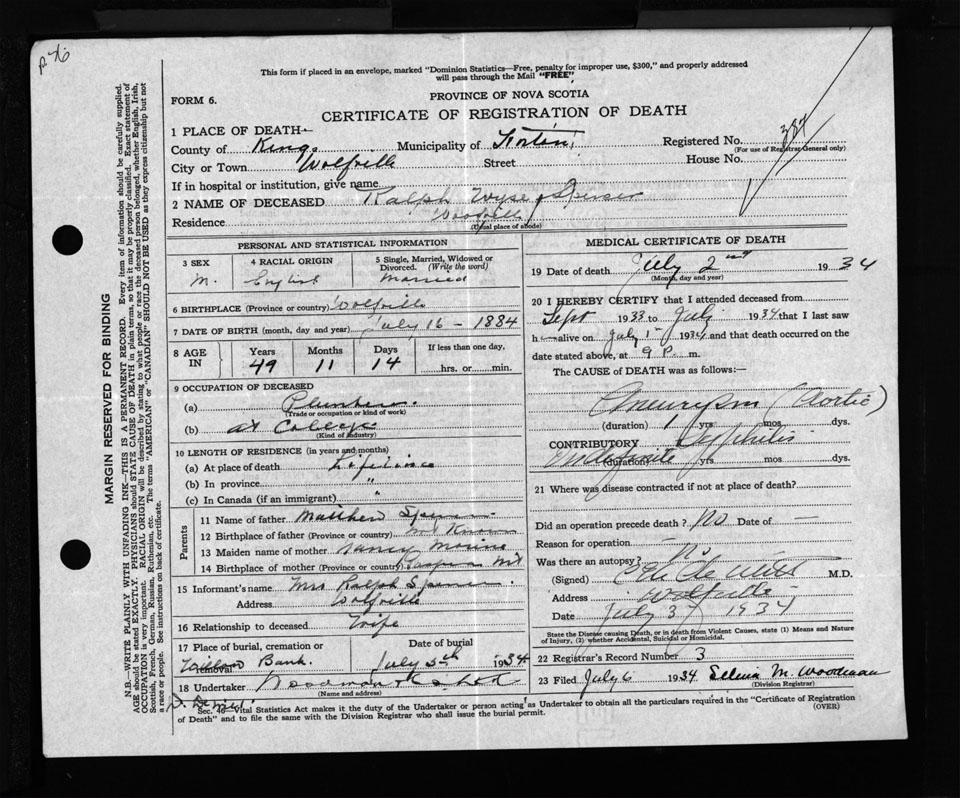 P. 76
This form if placed in an envelope, marked "Dominion Statistics—Free, penalty for improper use, $300," and properly addressed
will pass through the Mail "FREE"
FORM 6.
PROVINCE OF NOVA SCOTIA
CERTIFICATE OF REGISTRATION OF DEATH
1 PLACE OF DEATH—
County of Kings Municipality of Horton Registered No. 384
(For use of Registrar General only)
City or Town Wolfville Street House No.
If in hospital or institution, give name
2 NAME OF DECEASED Ralph Spencer
Residence Wolfville
(Usual place of abode)
MARGIN RESERVED FOR BINDING
N.B.—WRITE PLAINLY WITH UNFADING INK—THIS IS A PERMANENT RECORD. Every item of information should be carefully supplied.
AGE should be stated EXACTLY. PHYSICIANS should STATE CAUSE OF DEATH in plain terms, so that it may be properly classified. Exact statement of
OCCUPATION is very important. RACIAL ORIGIN will be described by stating to what people or race the deceased person belonged, whether English, Irish,
Scottish, French, German, Russian, Ruthenian, etc. The terms "AMERICAN" or "CANADIAN" SHOULD NOT BE USED as they express citizenship but not
a race or people. See instructions on back of certificate.
PERSONAL AND STATISTICAL INFORMATION
3 SEX 4 RACIAL ORIGIN 5 Single, Married, Widowed or
Divorced. (Write the word)
M. English Married
6 BIRTHPLACE (Province or country) Wolfville
7 DATE OF BIRTH (month, day and year) July 16 - 1884
8 AGE IN Years Months Days If less than one day,
49 11 14 hrs. or min.
9 OCCUPATION OF DECEASED
(a) Plumber
(Trade or occupation or kind of work)
(b) at College
(Kind of industry)
10 LENGTH OF RESIDENCE (in years and months)
(a) At place of death Lifetime
(b) In province "
(c) In Canada (if an immigrant) "
Parents
11 Name of father Matthew Spencer
12 Birthplace of father (Province or country) not Known
13 Maiden name of mother Nancy
14 Birthplace of mother (Province or country) Gaspereau Mt
15 Informant's name Mrs Ralph Spencer
Address Wolfville
16 Relationship to deceased Wife
17 Place of burial, cremation or removal Date of burial
Willow Bank. July 5th 1934
18 Undertaker Woodman
(Name and address)
MEDICAL CERTIFICATE OF DEATH
19 Date of death July 2nd 1934
(Month, day and year)
20 I HEREBY CERTIFY that I attended deceased from
Sept 1933 to July 1934 that I last saw
h alive on July 1st 1934 and that death occurred on
date stated above, at 9 P. m.
The CAUSE of DEATH was as follows:—
Aneurysm (Aortic)
(duration) 1 yrs mos dys.
CONTRIBUTORY Syphilis
Indefinite (duration) yrs mos dys.
21 Where was disease contracted if not at place of death?
Did an operation precede death? No Date of —
Reason for operation —
Was there an autopsy? No
(Signed) DeWitt M.D.
Address Wolfville
Date July 3 1934
State the Disease causing Death, or in death from Violent Causes, state (1) Means and Nature
of Injury, (2) whether Accidental, Suicidal or Homicidal.
22 Registrar's Record Number 3
23 Filed July 6 1934 M. Woodman
(Division Registrar)
Sec. 40—Vital Statistics Act makes it the duty of the Undertaker or person acting as Undertaker to obtain all the particulars required in the "Certificate of Registration
of Death" and to file the same with the Division Registrar who shall issue the burial permit.
(OVER)